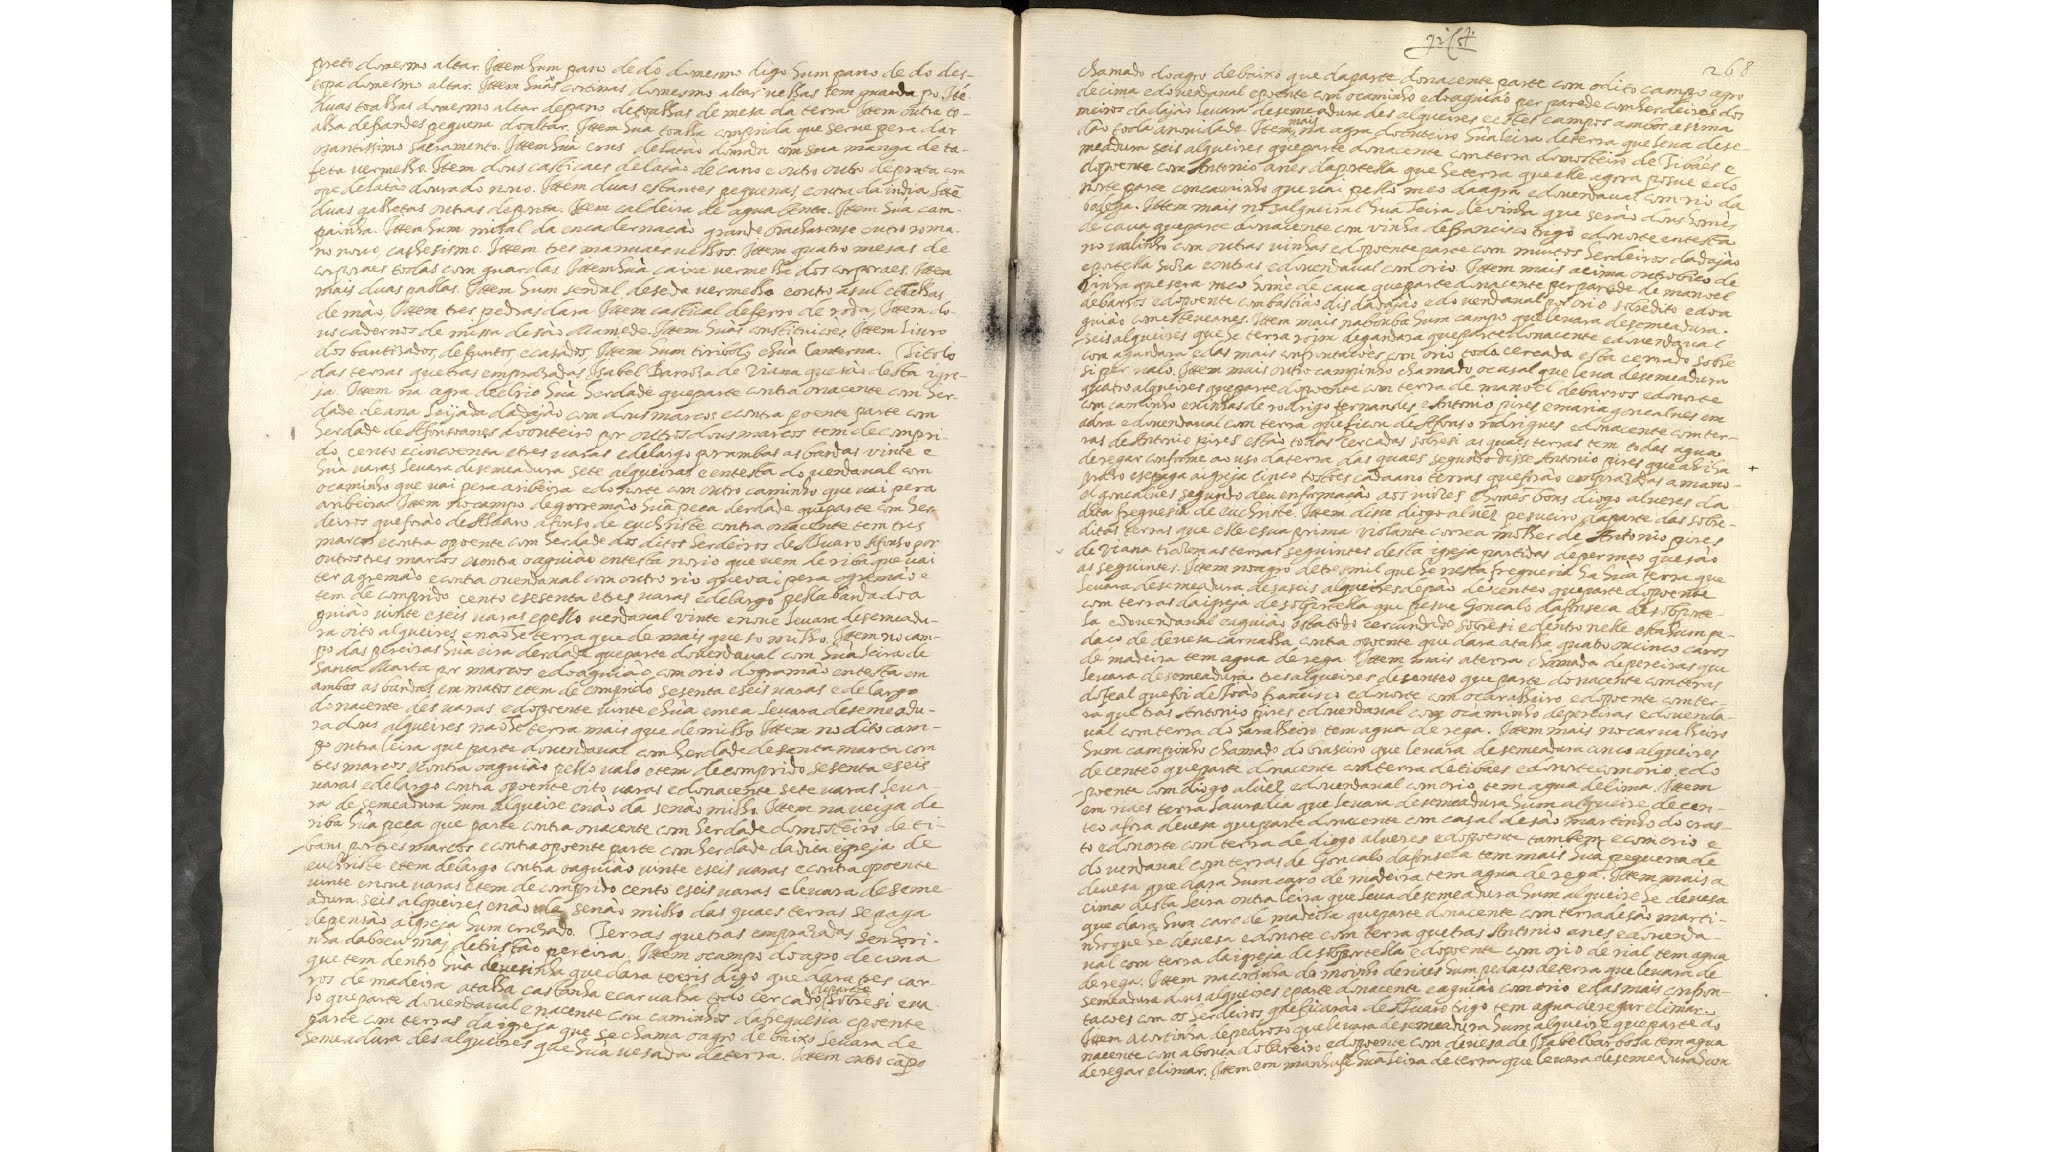 preto do mesmo altar. Ittem hum pano de do do mesmo digo hum pano de do des-
topa do mesmo altar. Ittem huãs cortinas do mesmo altar velhas tem guarda po. Ité
duas toalhas do mesmo altar de pano de toalhas de mesa da terra. Ittem outra to-
alha de frandes pequena do altar. Ittem huã toalha comprida que serue pera dar
o santissimo sacramento. Ittem huã crus de latão dourada com sua manga de ta-
feta vermelho. Ittem dous casticaes de latão de cano e outro de prata com
o pe de latão dourado nouo. Ittem duas estantes pequenas e outra da india. Itté
duas galhetas outras de prata. Ittem caldeira de agua benta. Ittem huã cam-
painha. Ittem hum misal da encadernação grande bracharense outro roma-
no nouo, cathesismo. Ittem tres manuaes velhos. Ittem quatro mesas de
corporaes todas com guardas. Ittem huã caixa vermelha dos corporaes. Ittem
mais duas pallas. Ittem hum sendal de seda vermelho e outro asul e toalhas
de mão, Ittem tres pedras dara Ittem castical de ferro de roda, Ittem do-
us cadernos de missa de são Mamede. Ittem huãs constituicões. Ittem Liuro
dos bautisados, defuntos e casados. Ittem hum tiribolo e huã Lanterna. Titolo
das terras que tras emprazadas Isabel Barrosa de Viana que são desta igre-
ja. Ittem na agra do rio huã herdade que parte contra onacente com her-
dade de ana seijada da dajão com dous marcos e contra poente parte com
herdade de Afonsoanes do outeiro por outros dous marcos tem de compri-
do cento e cincoenta e tres varas e de largo por ambas as bandas vinte e
huã varas leuara de semeadura sete alqueiras e entesta do vendaual com
o caminho que vai pera a ribeira e do norte com outro caminho que vai pera
a ribeira. Ittem no campo de gorremão huã peca derdade que parte com her-
deiros que forão de Aluaro afonso de euchriste contra onacente tem tres
marcos e contra opoente com herdade dos ditos herdeiros de Aluaro Afonso por
outros tres marcos e contra oaguião entesta no rio que vem de riba que vai
ter agremão e contra ovendaual com outro rio que vai pera ogremão e
tem de comprido cento e sesenta e tres varas e de largo pella banda do a
guião vinte e seis varas e pello vendaual vinte e noue leuara de semeadu-
ra oito alqueires e não he terra que de mais que so milho. Ittem no cam-
po das pereiras huã eira derdade que parte do vendaual com huã leira de
Santa Marta por marcos e do aguião com orio do gramão entesta em
ambas as bandas em matos e tem de comprido sesenta e seis varas e de largo
do nacente des varas e do poente vinte e huã e mea leuara de semeadu-
ra dous alqueires não he terra mais que de milho. Ittem no dito cam-
po outra leira que parte do vendaual com herdade de santa marta con
tres marcos e contra oaguião pello valo e tem de comprido sesenta e seis
varas e de largo contra opoente oito varas e do nacente sete varas leua-
ra de semeadura hum alqueire e não da senão milho. Ittem na veiga de
riba huã peca que parte contra onacente com herdade do mosteiro de ti-
bans por tres marcos e contra opoente parte com herdade da dita egreja de
euchriste e tem de largo contra oaguião vinte e seis varas e contra opoente
vinte e noue varas e tem de comprido cento e seis varas e leuara de seme
adura seis alqueires e não da senão milho das quaes terras se paga
de pensão a igreja hum cruzado. Terras que tras emprazadas senhori-
nha dabreu mai de tristão pereira. Ittem ocampo do agro de cima
que tem dentro huã deuesinha que dara tereis digo que dara tres car-
ros de madeira atalha castanha e carualha todo cercado departe sobresi e va-
lo que parte do vendaual e nacente com caminhos da freguesia e poente
parte com terras da igreja que se chama oagro de baixo leuara de
semeadura des alqueires que huã vesada de terra. Ittem outro cãpo
268
chamado do agro de baixo que da parte do nacente parte com o dito campo agro
de cima e do vendaual e poente com ocaminho e do aguião per parede com herdeiros dos
meiros da dajão leuara de semeadura des alqueires e estes campos ambos asima
dão toda a nouidade. Ittem mais na agra do outeiro huã leira de terra que leua de se-
meadura seis alqueires que parte do nacente com terra do mosteiro de Tibães e
do poente com Antonio anes da portella que he terra que elle agora posue e do
norte parte com caminho que vai pello meo da agra e do vendaual com rio da
bodega. Ittem mais no salgueiral huã leira de vinha que serão dous homẽs
de caua que parte do nacente com vinha de francisco trigo e do norte entesta
no valinho com outras vinhas e do poente parte com muitos herdeiros da dajão
e portella sosa e outras e do vendaual com orio. Ittem mais acima outro bico de
vinha que sera meo home de caua que parte do nacente per parede de manoel
de barros e do poente com bastião dis da dajão e do vendaual por orio sobredito e do a
guião com esteueanes. Ittem mais na borba hum campo que leuara de semeadura
seis alqueires que he terra roim de gandara que parte do nacente e do vendaual
com agandara e das mais confrontações com orio todo cercado esta cerrado sobre
si per valo. Ittem mais outro campinho chamado ocasal que leua de semeadura
quatro alqueires que parte do poente com terra de manoel de barros e do norte
com caminho e vinhas de rodrigo fernandes e Antonio pires e maria goncalues em
adra e do vendaual com terra que ficou de Afonso rodrigues e do nacente com ter-
ras de Antonio pires estão todas cercadas sobresi as quais terras tem todas agua
de regar conforme ao uso da terra das quaes segundo disse Antonio pires que a vinha
prazo e se paga a igreja cinco tostões cada ano terras que forão emprazadas a mano-
el goncalues segundo deu enformação aos juizes e homẽs bons diogo alueres da
dita freguesia de euchriste. Ittem disse diogo aluez pesueiro da parte das sobre-
ditas terras que elle e sua prima violante correa molher de Antonio pires
de Viana trazem as terras seguintes desta igreja partidas de per meo que são
as seguintes. Ittem no agro de tresmil que he nesta freguesia ha huã terra que
leuara de semeadura desaseis alqueires de pão de centeo que parte do poente
com terras da igreja de sobportella que posue Goncalo dafonseca de sobporte-
la e do vendaual e aguião esta todo cercundado sobresi e dentro nelle esta hum pe-
daco de deuesa carualha contra opoente que dara atalha quatro ou cinco carros
de madeira tem agua de rega. Ittem mais aterra chamada de pereiras que
leuara de semeadura tres alqueires de senteo que parte do nacente com terras
do feal que foi de João francisco e do norte com ocarualheiro e do poente com ter-
ra que tras Antonio pires e do vendaual com ocaminho de pereiras e do venda-
ual com terra do sarassheiro tem agua de rega. Ittem mais no carualheiro
hum campinho chamado do braseiro que leuara de semeadura cinco alqueires
de centeo que parte do nacente com terra de tibães e do norte com orio. e do
poente com diogo aluez e do vendaual com orio tem agua de lima. Ittem
em naes terra lauradia que leuara de semeadura hum alqueire de cen-
teo afora deuesa que parte do nacente com casal de são martinho do cras-
to e do norte com terra de diogo alueres e do poente tambem e com orio e
do vendaual com terras de Goncalo dafonseca tem mais huã pequena de
deuesa que dara hum caro de madeira tem agua de rega. Ittem mais a
cima desta leira outra leira que leua de semeadura hum alqueire he deuesa
que dara hum caro de madeira que parte do nacente com terra de são marti-
nho que he deuesa e do norte com terra que tras Antonio anes e do venda-
ual com terra da igreja de sobportella e do poente com orio de rial tem agua
de rega. Ittem na cortinha do moinho de riaes hum pedaco de terra que leuara de
semeadura dous alqueires e parte do nacente e aguião com orio e das mais confron-
tacoes com os herdeiros que ficarão de Aluaro trigo tem agua de regar e limar.
Ittem a cortinha de pedroso que leuara de semeadura hum alqueire que parte do
nacente com a bouca do loureiro e do poente com deuesa de Isabel barbosa tem agua
de regar e limar. Ittem em manhufe huã leira de terra que leuara de semeadura hum